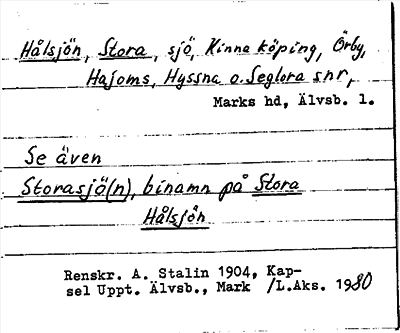 Hålsjön, Stora, sjö, Kinna köping, Örby,
Hajoms, Hyssna o. Seglora snr,
Marks hd, Älvsb. l.
Se även
Storasjö(n), binamn på Stora
Hålsjön
Renskr. A. Stalin 1904, Kap-
sel Uppt. Älvsb., Mark /L.Aks. 1980